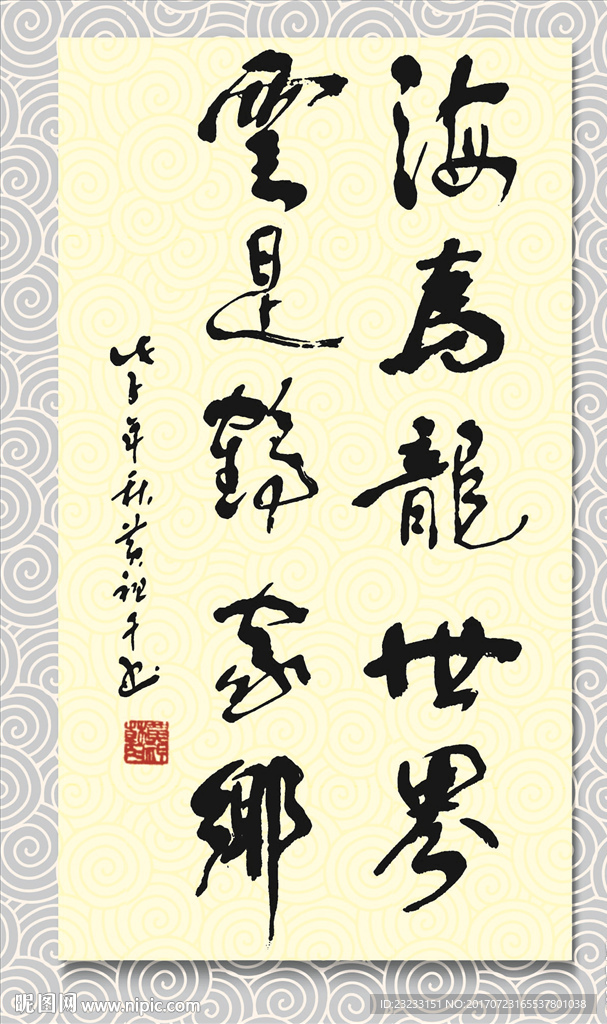 海為龍世界
雲是鶴家鄉
戊子年秋黄祖平书
昵图网 www.nipic.com
ID:23233151 NO:20170723165537801038